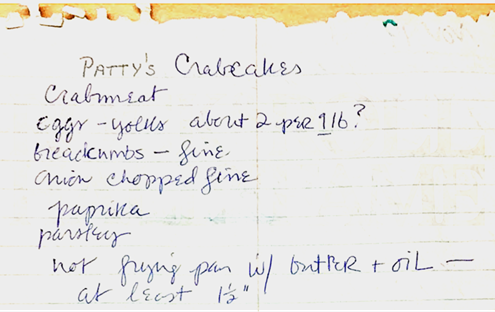 PATTY'S Crabcakes
Crabmeat
eggs - yolks about 2 per 1 lb?
breadcrumbs - fine
onion chopped fine
paprika
parsley
hot frying pan w/ butter + oil —
at least 1½"